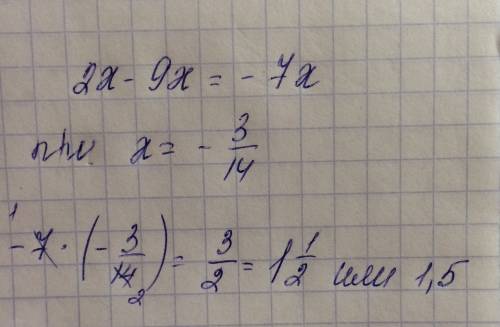 2x - 9x = - 7x
при x = - 3/14
-7 · (- 3/14) = 3/2 = 1 1/2 или 1,5
1
2